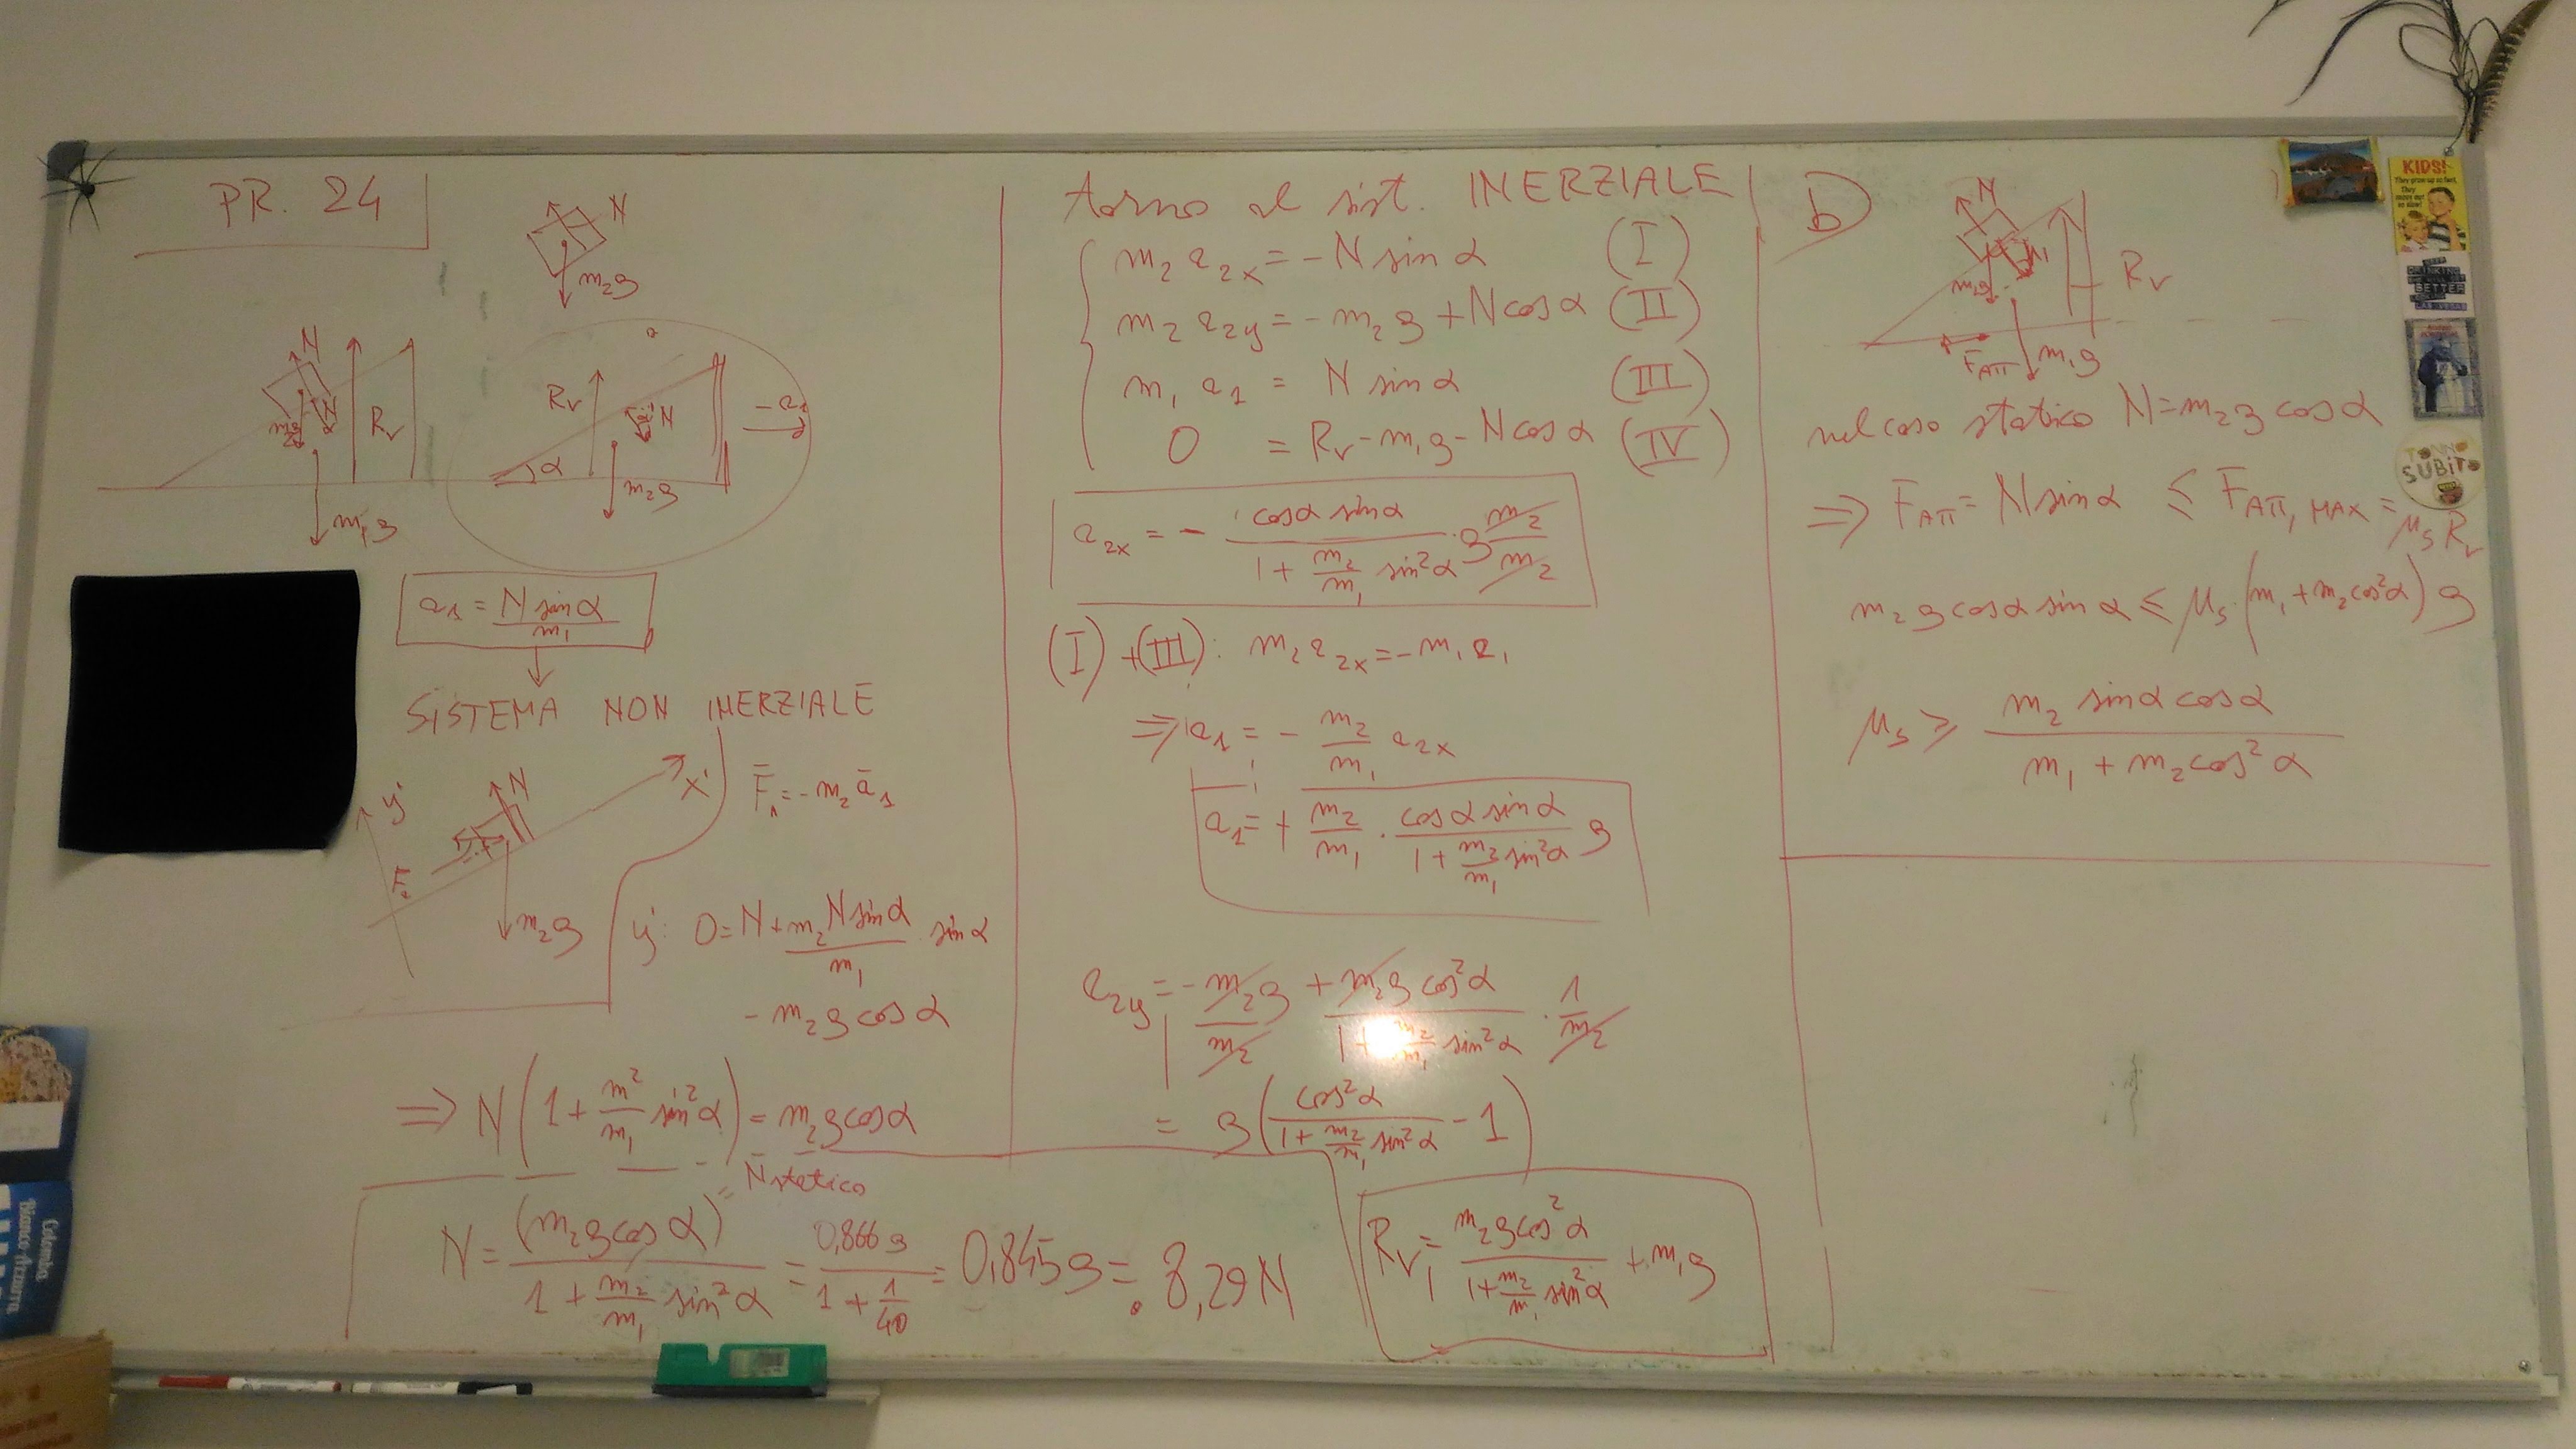 PR. 24
N
m₂g
N
N
m₂g
Rv
m₁g
Rv
N
α
m₂g
-a₁
a₁ = N sin α / m₁
SISTEMA NON INERZIALE
y'
x'
N
m₂g
F̄ = - m₂ ā₁
y': 0 = N + m₂ N sin α / m₁ · sin α
- m₂ g cos α
⇒ N (1 + m² / m₁ sin² α) = m₂ g cos α
= N statico
N = (m₂ g cos α) / (1 + m₂ / m₁ sin² α) = 0,866 g / (1 + 1/40) = 0,845 g = 8,29 N
torno al sist. INERZIALE
m₂ a₂ₓ = - N sin α (I)
m₂ a₂y = - m₂ g + N cos α (II)
m₁ a₁ = N sin α (III)
0 = Rv - m₁ g - N cos α (IV)
a₂ₓ = - cos α sin α / (1 + m₂ / m₁ sin² α) · g m₂ / m₂
(I) + (III): m₂ a₂ₓ = - m₁ a₁
⇒ a₁ = - m₂ / m₁ a₂ₓ
a₁ = + m₂ / m₁ · cos α sin α / (1 + m₂ / m₁ sin² α) g
a₂y = - m₂ g / m₂ + m₂ g cos² α / (1 + m₂ / m₁ sin² α) · 1 / m₂
= g (cos² α / (1 + m₂ / m₁ sin² α) - 1)
Rv = m₂ g cos² α / (1 + m₂ / m₁ sin² α) + m₁ g
b)
N
m₂g
Rv
F ATT
m₁g
nel caso statico N = m₂ g cos α
⇒ F ATT = N sin α ≤ F ATT, MAX = μs Rv
m₂ g cos α sin α ≤ μs · (m₁ + m₂ cos² α) g
μs ≥ m₂ sin α cos α / (m₁ + m₂ cos² α)
KIDS!
They grow up so fast.
They
BETTER
TONNO
SUBITO